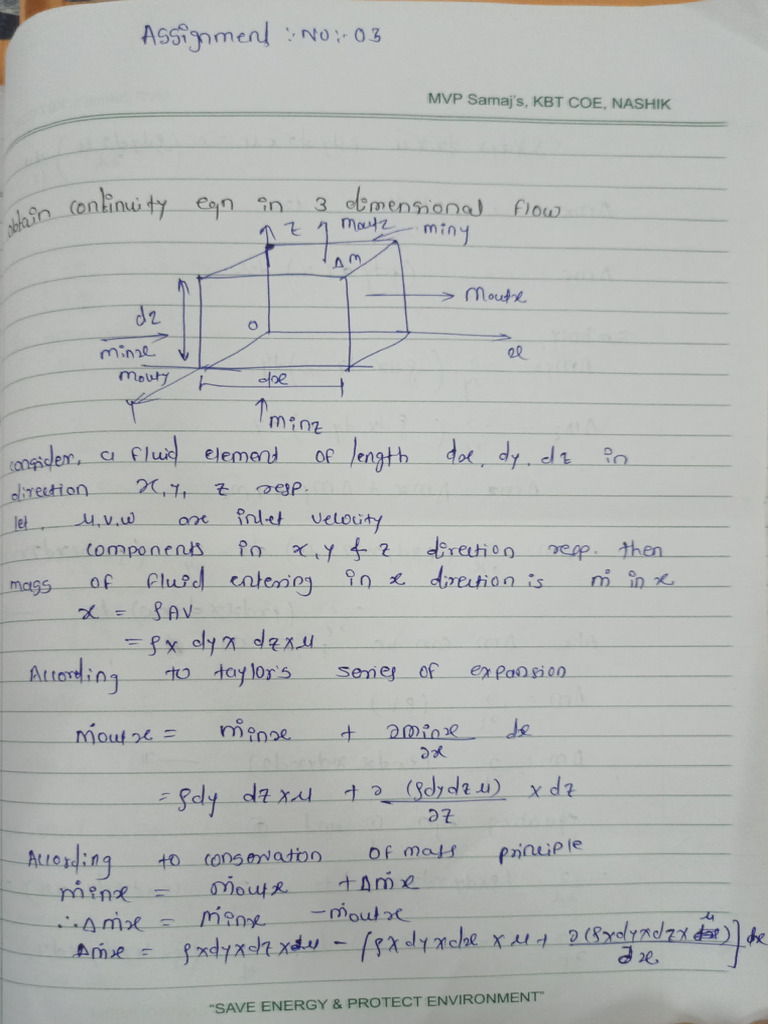 Assignment :- NO:- 03
MVP Samaj's, KBT COE, NASHIK
obtain continuity eqn in 3 dimensional flow
Z moutz miny
Δm
moutx
dz
O
x
minx
mouty
dx
Y
minz
consider, a fluid element of length dx, dy, dz in
direction x, y, z resp.
let, u,v,w are inlet velocity
components in x, y & z direction resp. then
mass of fluid entering in x direction is ṁ in x
x = ρAV
= ρ x dy x dz x u
According to taylor's series of expansion
ṁoutx = ṁinx + ∂ṁinx/∂x dx
= ρdy dz x u + ∂(ρdydzu)/∂z x dz
According to conservation of mass principle
ṁinx = ṁoutx + Δṁx
∴ Δṁx = ṁinx - ṁoutx
Δṁx = ρxdyxdzxu - [ρxdyxdx x u + ∂(ρxdyxdzxu)/∂x] dx
"SAVE ENERGY & PROTECT ENVIRONMENT"